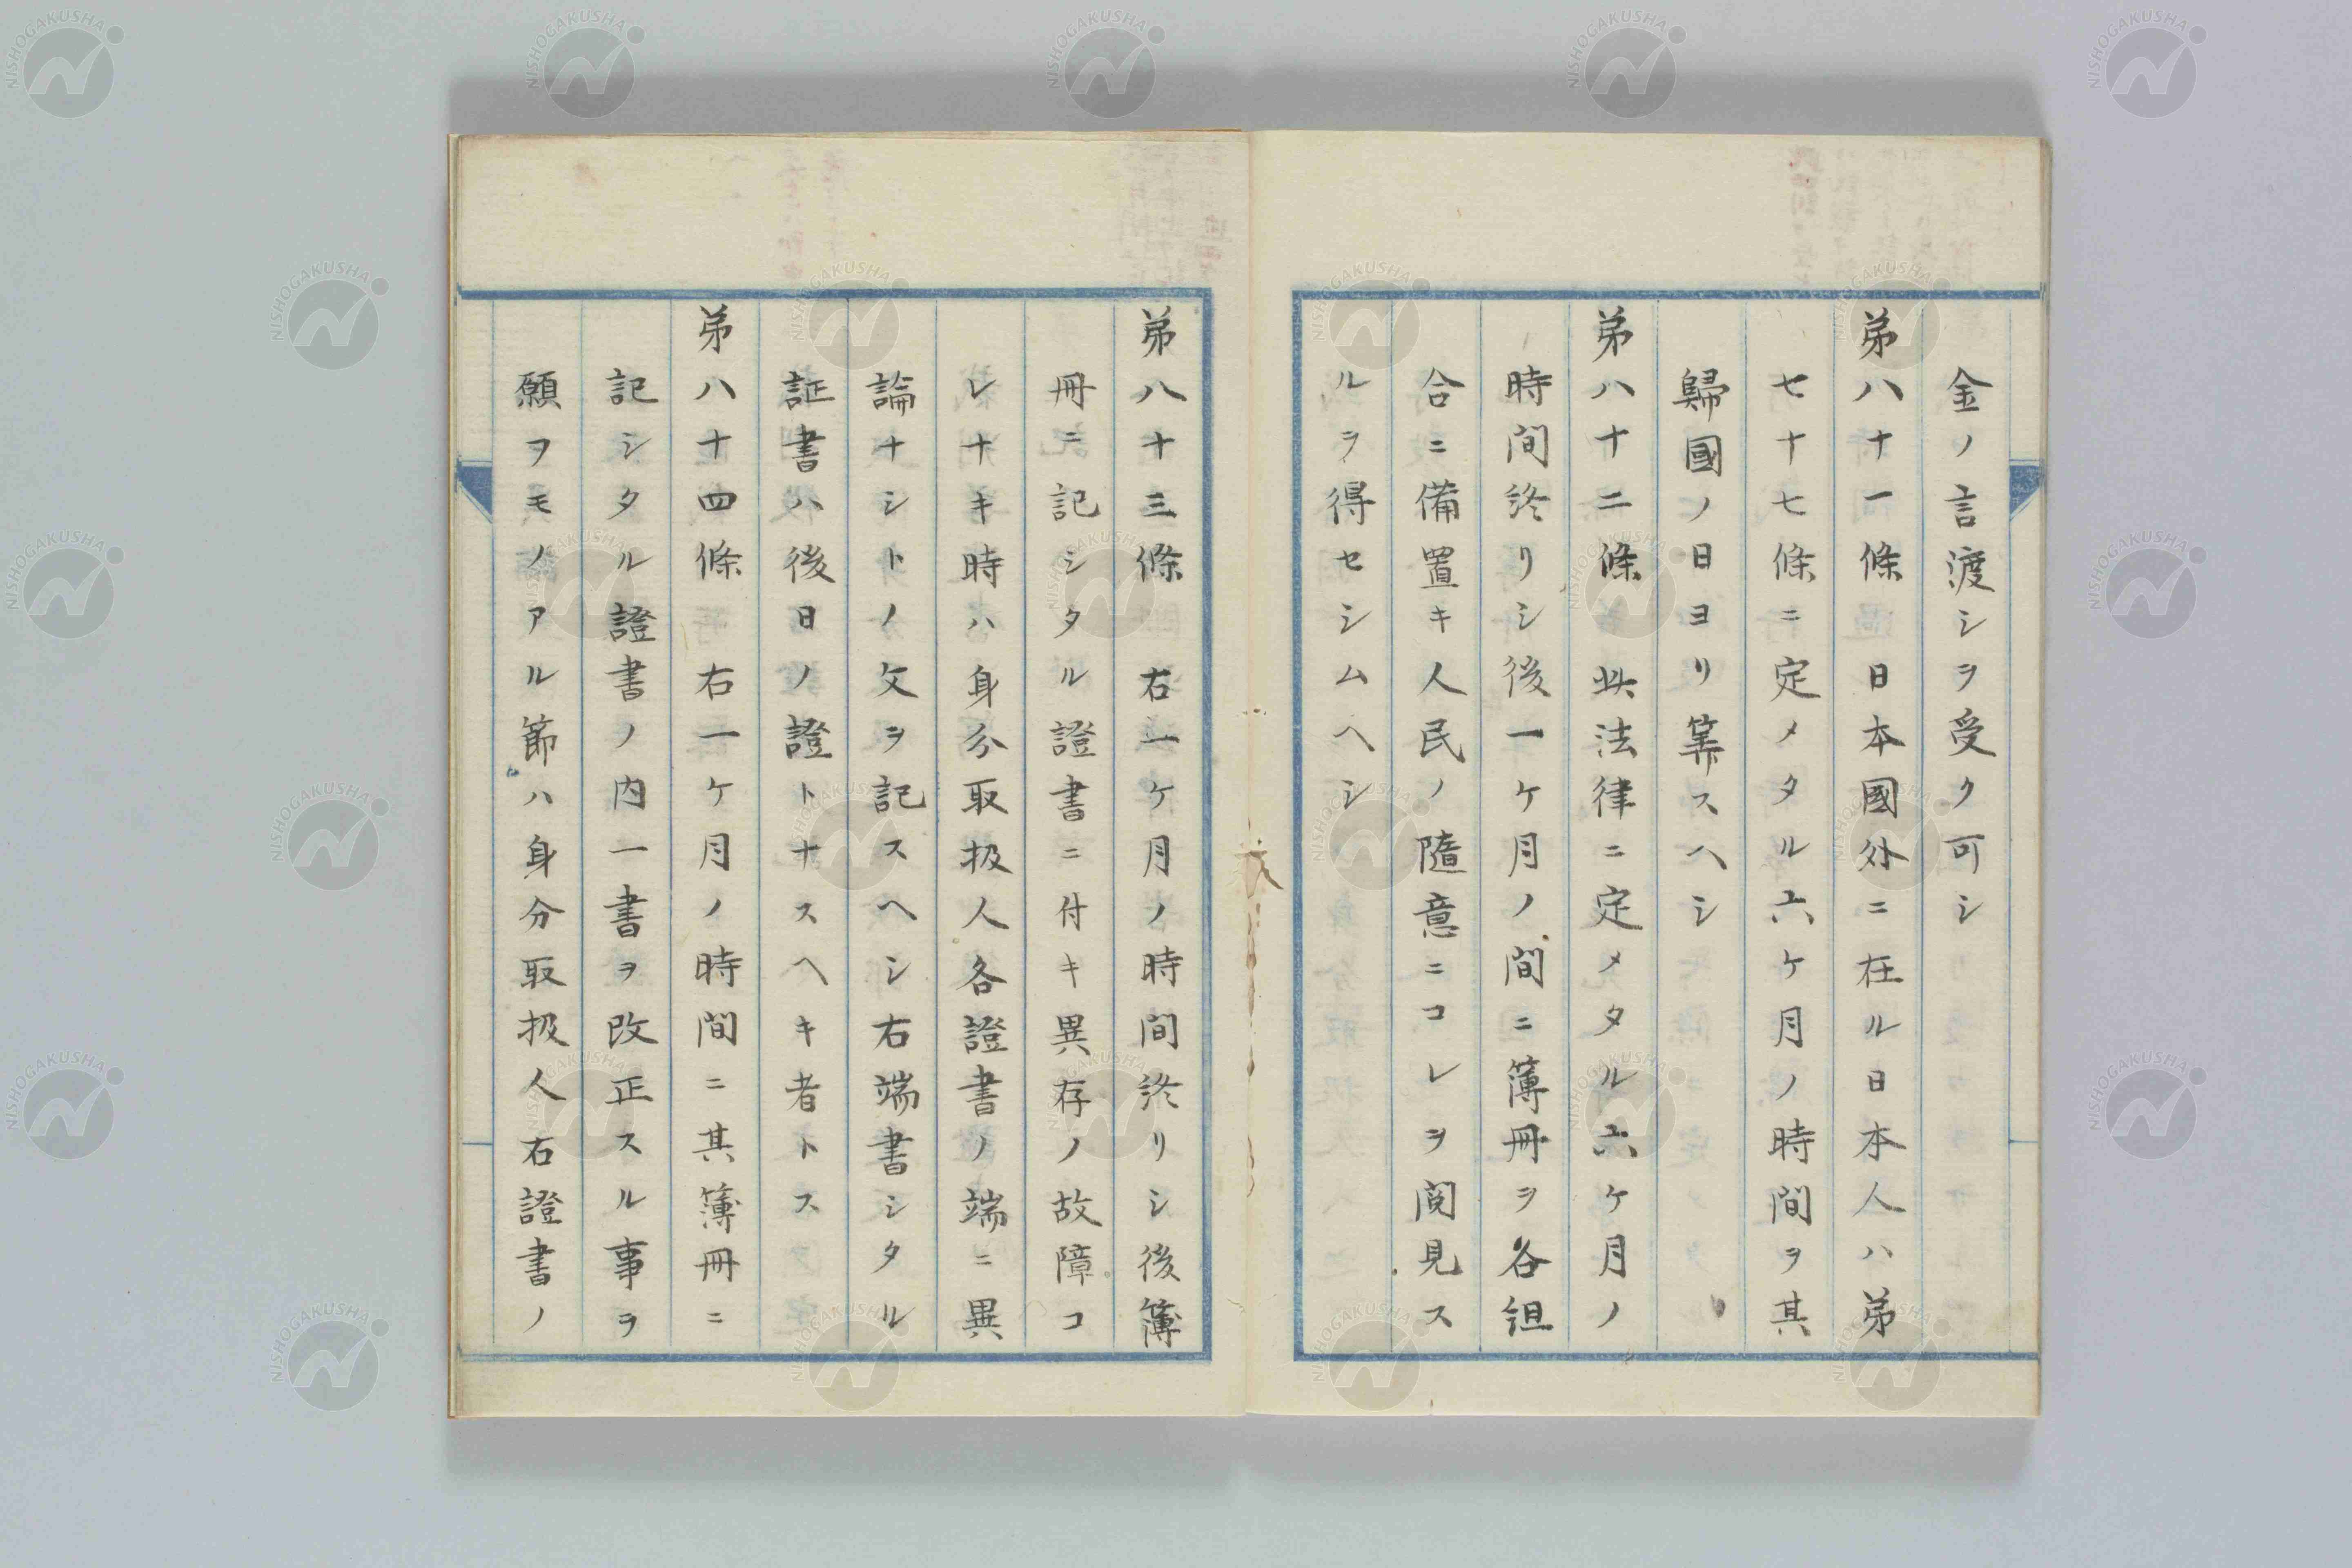 金ノ言渡シヲ受ク可シ
弟八十一條 日本國外ニ在ル日本人ハ弟
七十七條ニ定メタル六ケ月ノ時間ヲ其
歸國ノ日ヨリ筭スヘシ
弟八十二條 此法律ニ定メタル六ケ月ノ
時間終リシ後一ケ月ノ間ニ簿冊ヲ各组
合ニ備置キ人民ノ隨意ニコレヲ閲見ス
ルヲ得セシムヘシ
弟八十三條 右一ケ月ノ時間終リシ後簿
冊ニ記シタル證書ニ付キ異存ノ故障コ
レナキ時ハ身分取扱人各證書ノ端ニ異
論ナシトノ文ヲ記スヘシ右端書シタル
証書ハ後日ノ證トナスヘキ者トス
弟八十四條 右一ケ月ノ時間ニ其簿冊ニ
記シタル證書ノ内一書ヲ改正スル事ヲ
願ヲモノアル節ハ身分取扱人右證書ノ
NISHOGAKUSHA